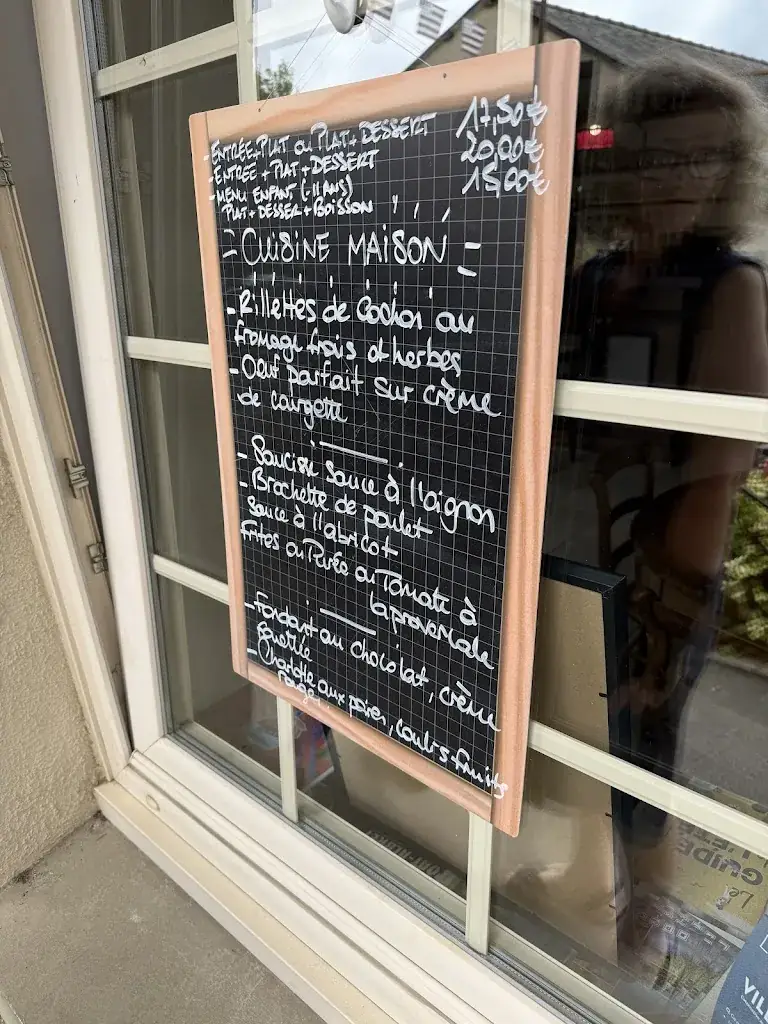 - ENTRÉE+PLAT OU PLAT+DESSERT 17,50€
- ENTRÉE + PLAT + DESSERT 20,00€
- MENU ENFANT (-11 ANS) 15,00€
PLAT + DESSER + BOISSON
= CUISINE MAISON =
- Rillettes de Cochon au
fromage frais et herbes
- Oeuf parfait sur crème
de courgette
- Saucisse sauce à l'oignon
- Brochette de poulet
sauce à l'abricot
frites ou Purée ou Tomate à
la provençale
- Fondant au chocolat, crème
fouettée
- Charlotte aux poires, coulis fruits
rouges
GUIDE
Le
VIL